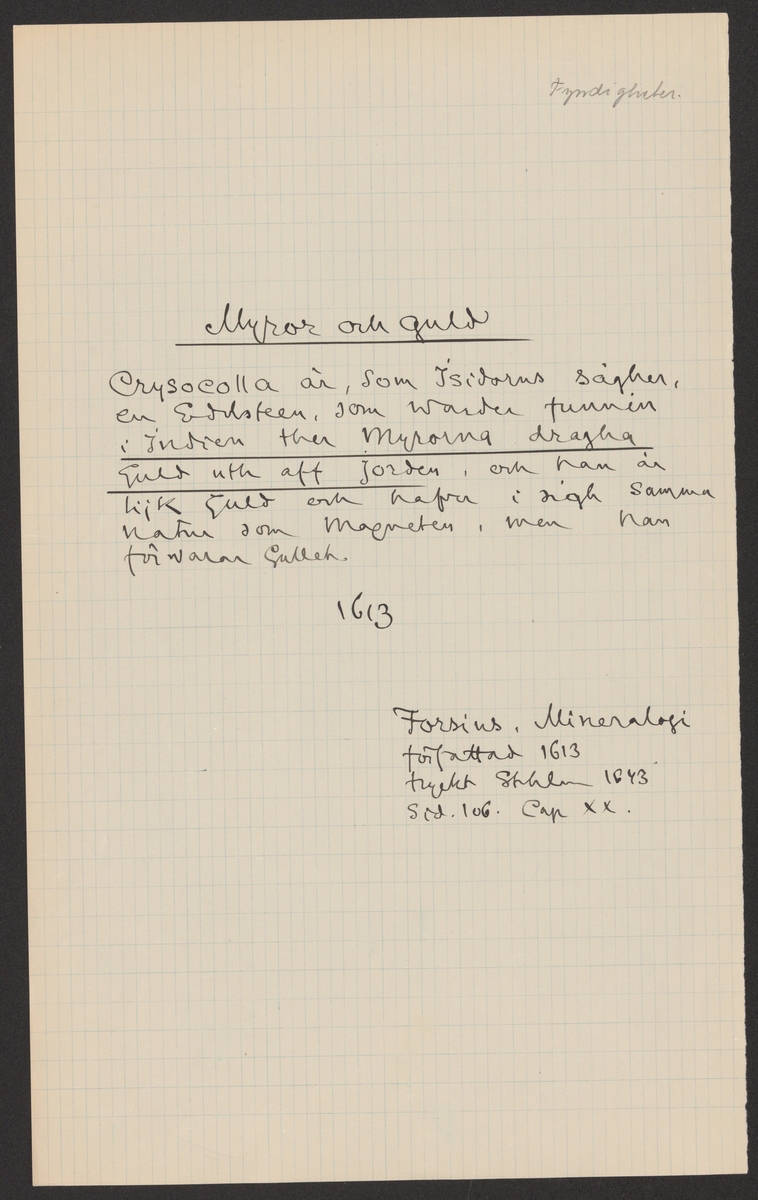 Fyndigheter.
Myror och guld
Crysocolla är, som Isidorus sägher,
en Edelsteen, som warder funnin
i Indien ther Myrorna dragha
Guld uth aff jorden, och han är
lijk Guld och hafver i sigh samma
natur som Magneten, men han
förwarar Gullet.
1613
Forsius, Mineralogi
författad 1613
tryckt Sthlm 1643
Sid. 106. Cap XX.